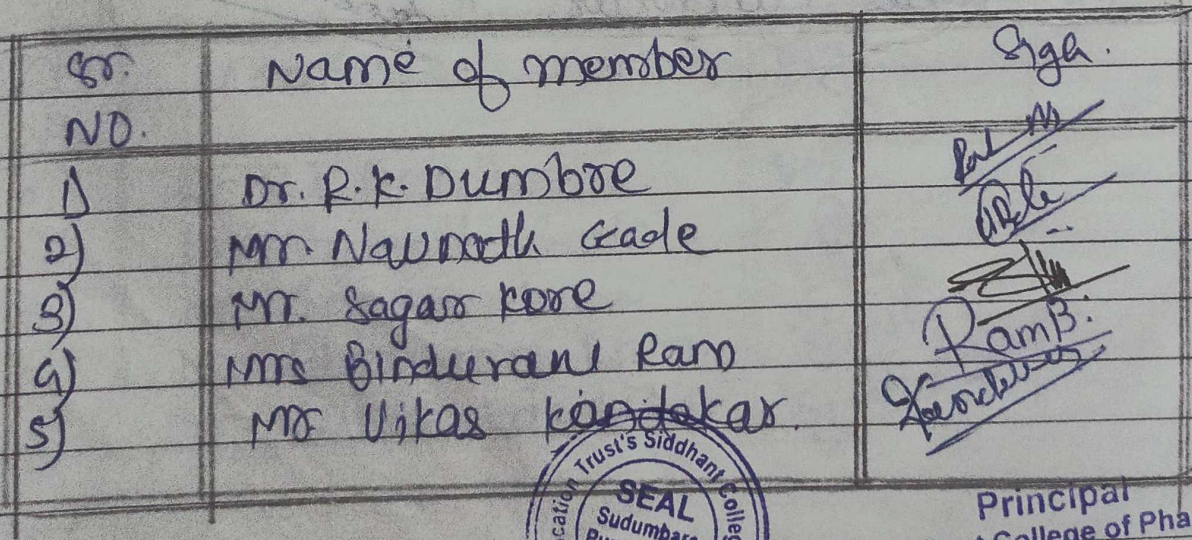 Sr. Name of member Sign.
NO.
1) Dr. R.K. Dumbre
2) Mr. Navnath Gade
3) Mr. Sagar Kore
4) Mrs Bindurani Ram RamB.
5) Mr Vikas Kandekar.
cation Trust's Siddhant Colleg
SEAL
Sudumbare
Principal
College of Pha